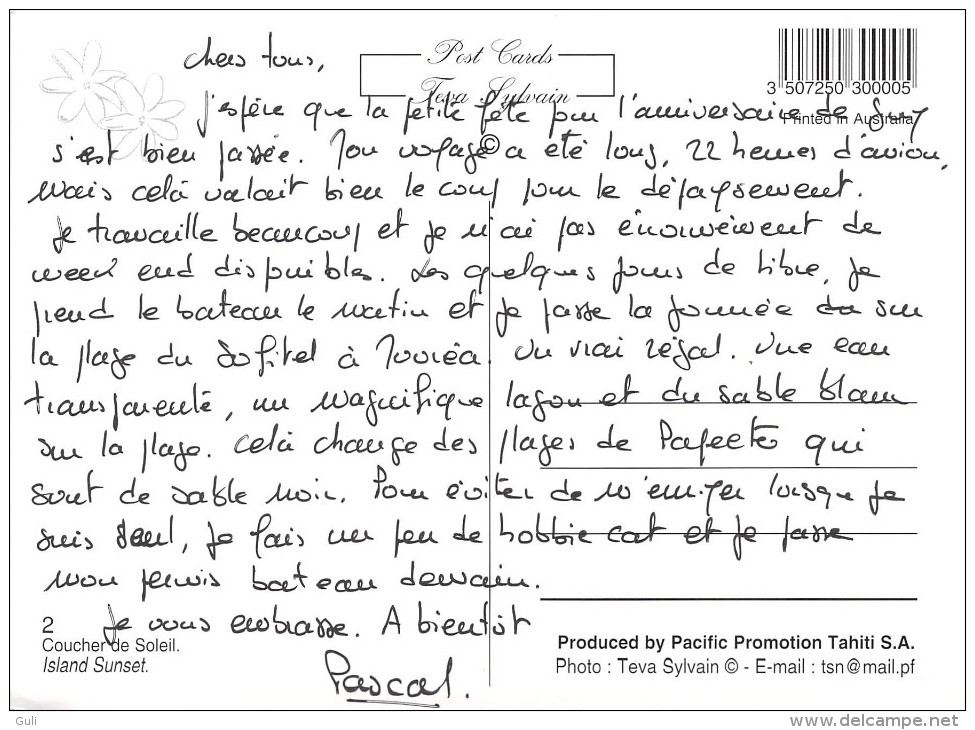 Chers tous,
Post Cards
Teva Sylvain
3 507250 300005
Printed in Australia
J'espère que la petite fête pour l'anniversaire de
s'est bien passée. Mon voyage a été long, 22 heures d'avion,
mais celà valait bien le coup pour le dépaysement.
Je travaille beaucoup et je n'ai pas énormément de
week end disponibles. Les quelques jours de libre, je
prend le bateau le matin et je passe la journée sur
la plage du Sofitel à Mooréa. Un vrai régal. Une eau
transparente, un magnifique lagon et du sable blanc
sur la plage. Celà change des plages de Papeete qui
sont de sable noir. Pour éviter de m'ennuyer lorsque je
suis seul, je fais un peu de hobbie cat et je passe
mon permis bateau demain.
Je vous embrasse. A bientôt
Pascal.
2
Coucher de Soleil.
Island Sunset.
Produced by Pacific Promotion Tahiti S.A.
Photo : Teva Sylvain © - E-mail : tsn@mail.pf
Guli
www.delcampe.net